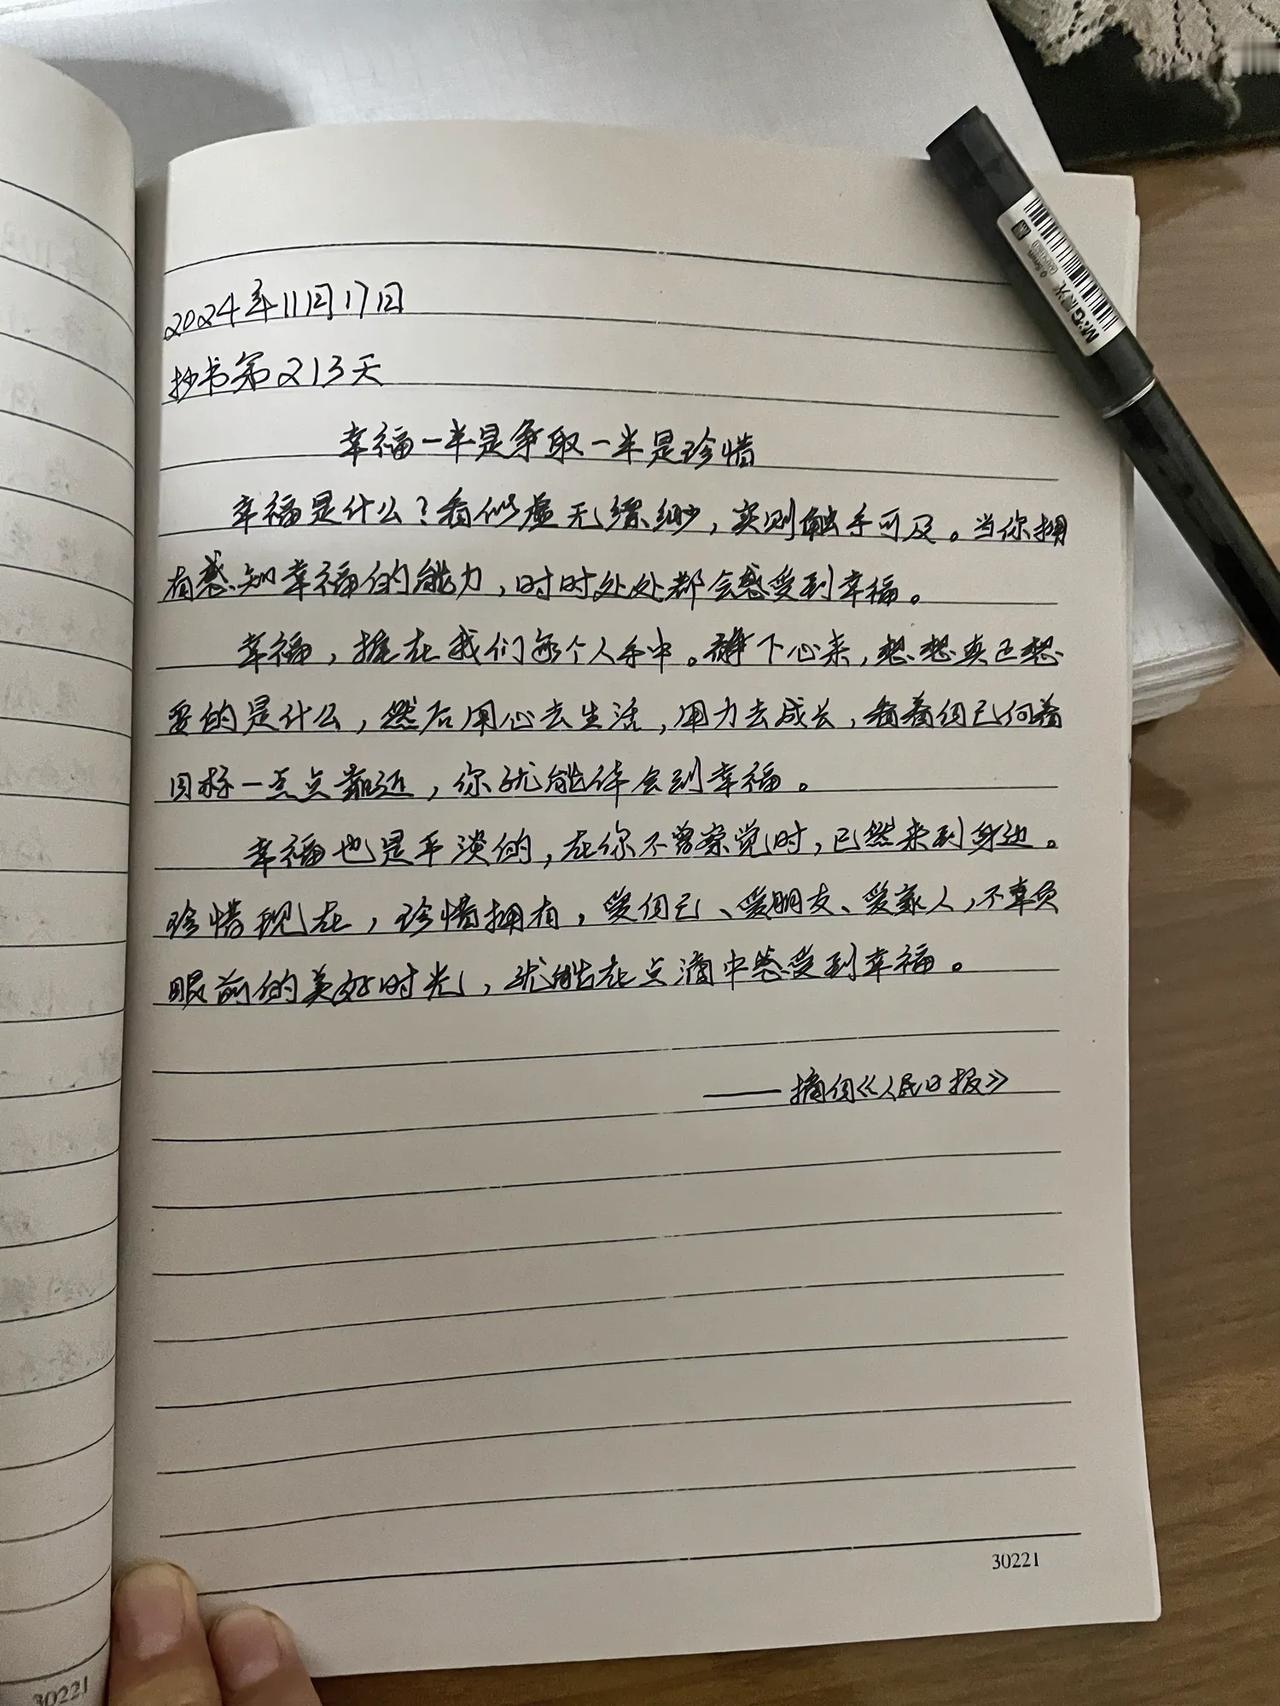 2024年11月17日
抄书第213天
幸福一半是争取一半是珍惜
幸福是什么？看似虚无缥缈，实则触手可及。当你拥
有感知幸福的能力，时时处处都会感受到幸福。
幸福，握在我们每个人手中。静下心来，想想真正想
要的是什么，然后用心去生活，用力去成长，看着自己向着
目标一点点靠近，你就能体会到幸福。
幸福也是平淡的，在你不曾察觉时，已然来到身边。
珍惜现在，珍惜拥有，爱自己、爱朋友、爱家人，不辜负
眼前的美好时光，就能在点滴中感受到幸福。
——摘自《人民日报》
30221
30221
M&G 晨光
0.5mm